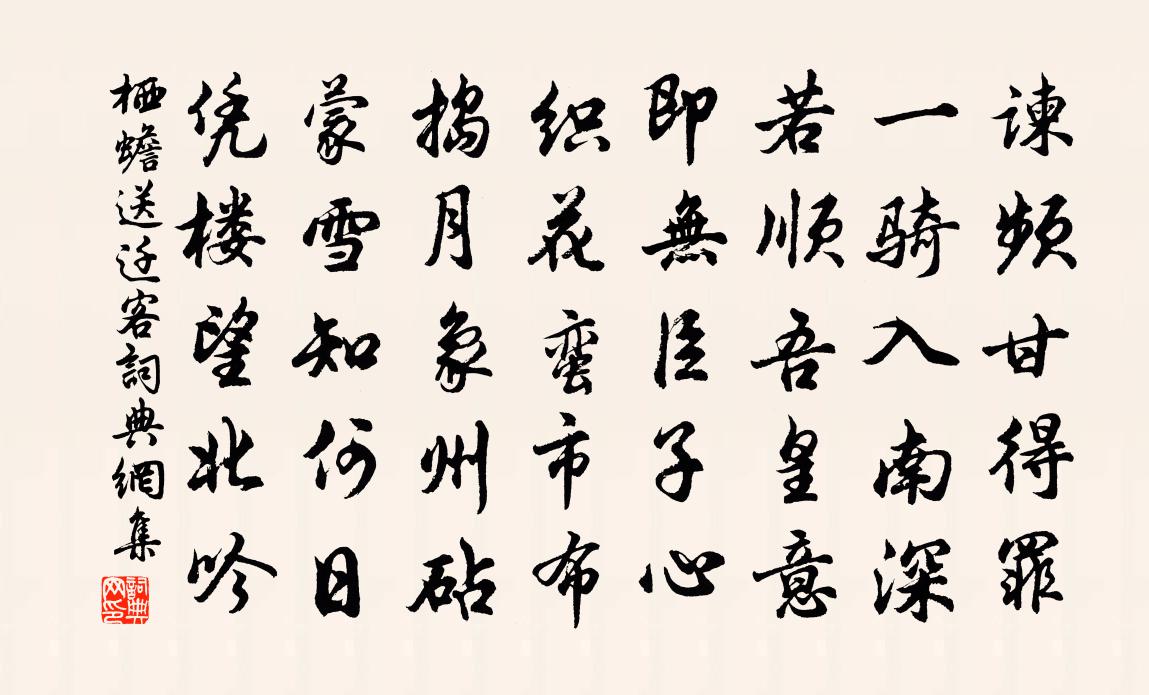 谏频甘得罪
一骑入南深
若顺吾皇意
即無臣子心
织花蛮市布
捣月象州砧
蒙雪知何日
凭楼望北吟
栖蟾送迁客詞典網集
詞典网印